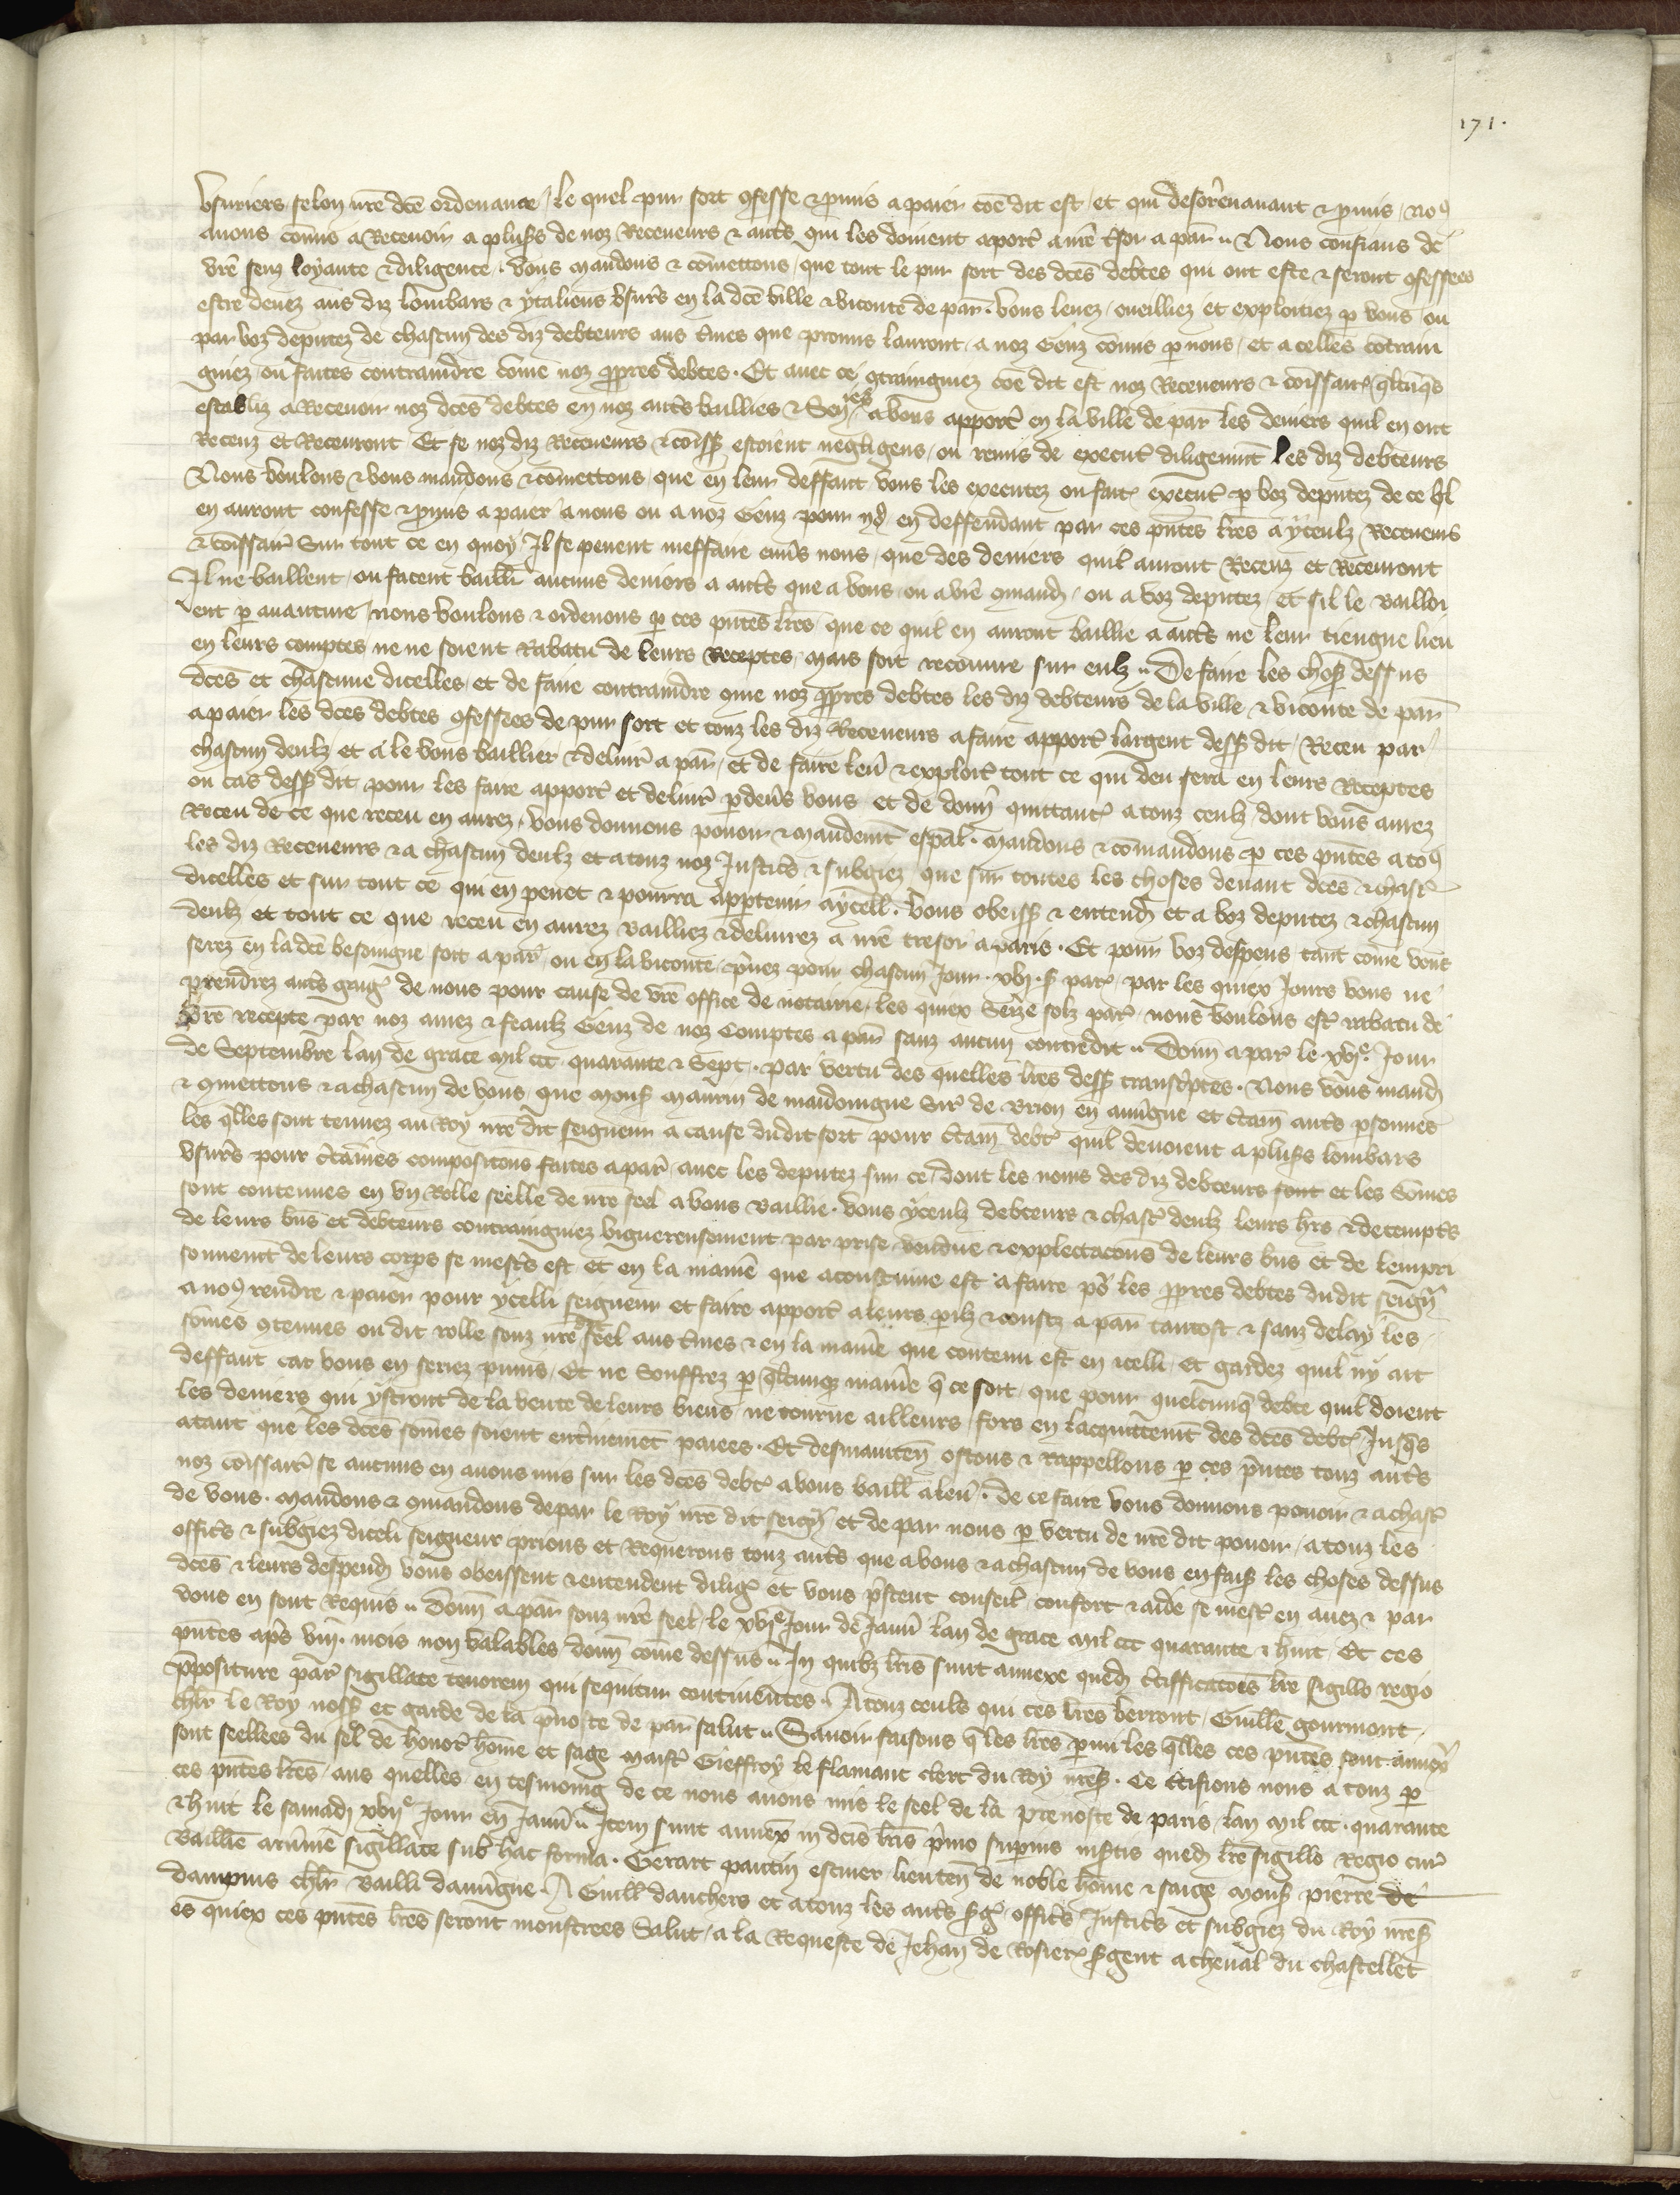 171.
usuriers selon nre dce ordenance / le quel pur sort ꝯfesse & pmis a paier coe dit est / et qui desorenavant & pmis / noꝯ
avons comis a Recevoir a plusrs de noz Receveurs & autrs qui les doivent aportr a nre tresor a par̄ // Nous confians de
vre senz loyaute & diligence . vous mandons & comettons / que tout le pur sort des dces debtes qui ont este & seront ꝯfessees
estre devez aus diz lombars & ytaliens usurs en la dce ville & viconte de par̄ . vous levez / cueilliez et exploitiez p vous ou
par voz deputez de chascun des diz debteurs aus tmes que promis lauront / a noz Genz comis p nous / et a celles cotrain
gniez ou faites contraindre come noz ppres debtes . Et avec ce ꝯtraingniez coe dit est noz Receveurs & comissairs qlcuqs
establiz a Recevoir noz dces debtes en noz autrs baillies & Senes a vous apportr en la ville de par̄ les deniers quil en ont
Receuz et Recevront Et se noz diz Receveurs & comiss estoient negligens / ou remis de executr diligemmt les diz debteurs
Nous voulons & vous mandons & comettons / que en leur deffaut vous les executez ou fait executr p voz deputez de ce ql
en auront confesse & pmis a paier a nous ou a noz Genz pour en deffendant par ces pntes lres a yceulz Receveurs
& comissairs Sur tout ce en quoy Il se pevent meffaire envs nous / que des deniers quil auront Receuz et Recevront
Il ne baillent / ou facent baillr aucuns deniers a autrs que a vous / ou a vre ꝯmand / ou a voz deputez / et sil le bailloi
ent p avanture / nous voulons & ordenons p ces pntes lres / que ce quil en auront baillie a autrs ne leur tiengne lieu
en leurs comptes / ne ne soient Rabatu de leurs Receptes / mais soit recouvre sur eulz // De faire les chos dessus
dces et chascune dicelles / et de faire contraindre ꝯme noz ppres debtes les diz debteurs de la ville & viconte de par̄
a paier les dces debtes ꝯfessees de pur sort et touz les diz Receveurs a faire apportr largent dess dit / Receu par
chascun deulz / et a le vous baillier & delivrr a par̄ / et de faire levr & exploitr tout ce qui deu sera en leurs Receptes
ou cas dess dit pour les faire apportr et delivrr pdevs vous et de donr quittanc a touz ceulz dont vous aurez
Receu de ce que receu en aurez / vous donnons povoir & mandemt espal . mandons & comandons p ces pntes a toꝯ
les diz Receveurs & a chascun deulz et a touz noz Justicrs & subgiez / que sur toutes les choses devant dces & chasc
dicelles et sur tout ce qui en peuet & pourra appartenir a ycell . vous obeiss & entend et a voz deputez & chascun
deulz et tout ce que receu en aurez bailliez & delivrez a nre tresor a paris . Et pour voz despens tant come vous
serez en la dce besoingne soit a par̄ ou en la viconte / prenez pour chascun Jour . xvj . s par̄ / par les quiex Jours vous ne
prendrez autrs gaig de nous pour cause de vre office de notairie / les quiex Seize solz par̄ / nous voulons estr rabatu de
vre recepte par noz amez & feaulz Genz de noz Comptes a par̄ sanz aucun contredit // Donn a par̄ le xvje Jour
de Septembre lan de grace mil ccc quarante & Sept . par vertu des quelles lres dess transcptes . Nous vous mand
& ꝯmettons & a chascun de vous / que mons maurin de mandoingne Sir de brion en auvgne et ctain autrs psonnes
les qlles sont tenuez au Roy nre dit seigneur a cause dudit sort pour ctain debt quil devoient a plusrs lombars
usurs pour ctaines compositions faites a par̄ avec les deputez sur ce / dont les noms des diz debteurs sont et les Somes
sont contenues en un Rolle seelle de nre seel a vous baillie . vous yceulz debteurs & chasc deulz leurs hrs & detempts
de leurs bns et debteurs contraingniez viguereusement par prise vendue & explectacons de leurs bns et de lempri
sonnemt de leurs corps se mestrs est et en la maniere que acoustume est a faire po les ppres debtes dudit seignr
a noꝯ rendre & paier pour ycelli seigneur et faire apportr a leurs perilz & coustz a par̄ tantost & sanz delay les
somes ꝯtenues ou dit rolle souz nre seel aus tmes & en la maniere que contenu est en icelli / Et gardez quil ny ait
deffaut car vous en seriez puniz / Et ne Souffrez p qlcunqs maniere q ce soit / que pour quelcunq debte quil doient
les deniers qui ystront de la vente de leurs biens / ne tourne ailleurs / fors en lacquittemt des dces debt Jusqs
atant que les dces somes soient entierement paiees . Et desmainten ostons & rappellons p ces pntes touz autrs
noz comissairs se aucuns en avons mis sur les dces debt a vous baill a levr . de ce faire vous donnons povoir & a chasc
de vous . mandons & ꝯmandons depar le Roy nre dit seignr et de par nous p vertu de nre dit povoir / a touz les
officrs & subgiez diceli seigneur prions et Requerons touz autrs que a vous & a chascun de vous en fais les choses dessus
dces & leurs despend vous obeissent & entendent dilig et vous prestent conseil confort & aide se mest en avez & par
vous en sont Requis // Donn a par̄ souz nre seel / le xvje Jour de Janvr lan de grace mil ccc quarante & huit / Et ces
pntes aps viij . mois non valables donn come dessus // In quibz lris sunt annexe qued ctifficacoes lre sigillo regio
ppositure par̄ sigillate tenorem qui sequitur continentes . A touz ceuls qui ces lres verront / Guille gourmont /
chlr le Roy noss et garde de la pvoste de par̄ salut // Savoir faisons q les lres pmi les qlles ces pntes sont annexs
sont seellees du seel de honorr home et sage maistr Gieffroy le flamant clerc du Roy nress . Ce ctifions nous a touz p
ces pntes lres / aus quelles en tesmoing de ce nous avons mis le seel de la prevoste de paris / lan mil ccc . quarante
& huit le samadi xvije Jour en Janvr // Item sunt annex in dcis lris pmo superius insertis qued lre sigillo Regio cur
baillie arvnie sigillate sub hac forma . Gerart pantin escuier lieuten de noble home & saige mons pierre de
dampmis chlr bailli dauvgne . A Guill danchers et a touz les autrs sg officrs Justicrs et subgiez du Roy nress
es quiex ces pntes lres seront monstrees Salut / a la Requeste de Jehan de Rosier sgent a cheval du chastellet